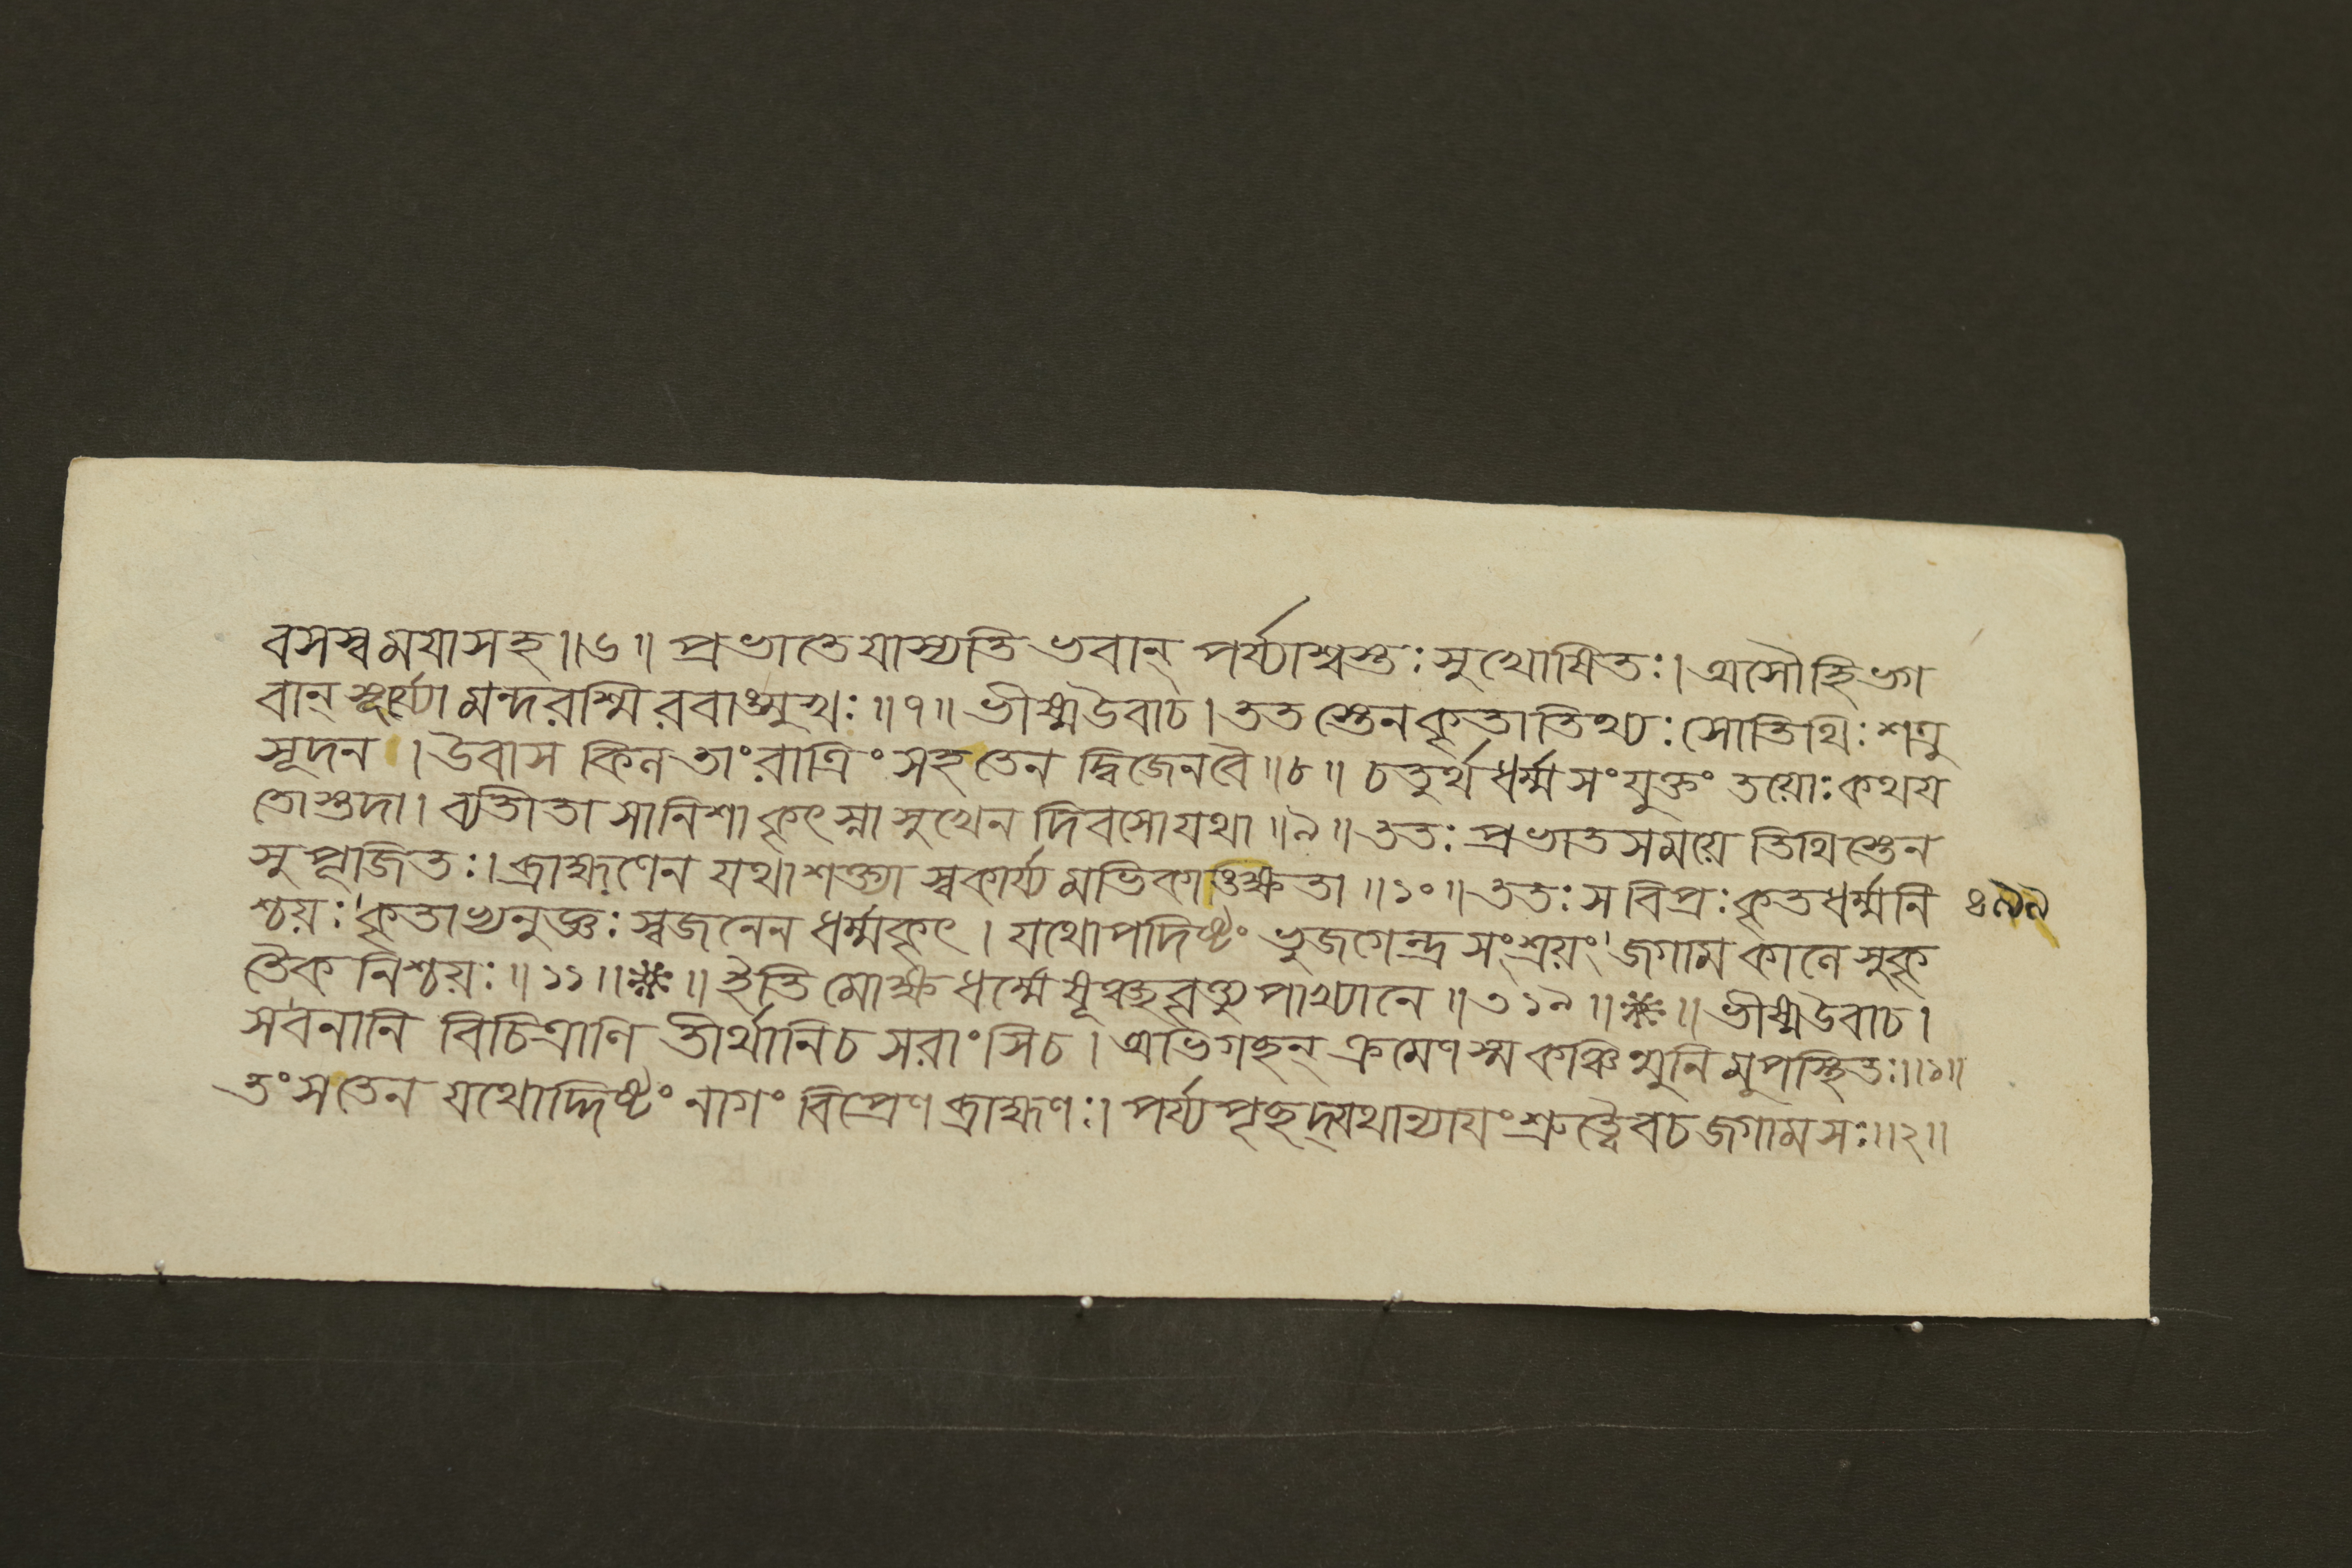 বসস্ব ময়া সহ॥৬॥ প্রভাতে যাস্যতি ভবান্ পর্য্যাশ্বস্তঃ সুখোষিতঃ। অসৌ হি ভগ
বান্ সূর্য্যো মন্দরশ্মিরবাঙ্মুখঃ॥৭॥ ভীষ্মউবাচ। ততস্তেন কৃতাতিথ্যঃ সোতিথিঃ শত্রু
সূদন। উবাস কিল তাং রাত্রিং সহ তেন দ্বিজেন বৈ॥৮॥ চতুর্থধর্ম্মসংযুক্তং তয়োঃ কথয়
তোস্তদা। ব্যতীতা সা নিশা কৃৎস্না সুখেন দিবসো যথা॥৯॥ ততঃ প্রভাতসময়ে তিথিস্তেন
সুপূজিতঃ। ব্রাহ্মণেন যথাশক্ত্যা স্বকার্য্যমভিকাঙ্ক্ষতা॥১০॥ ততঃ স বিপ্রঃ কৃতধর্ম্মনি
শ্চয়ঃ কৃতাভ্যনুজ্ঞঃ স্বজনেন ধর্ম্মকৃৎ। যথোপদিষ্টং ভুজগেন্দ্রসংশ্রয়ং জগাম কালে সুকৃ
তৈকনিশ্চয়ঃ॥১১॥❋॥ ইতি মোক্ষধর্ম্মে উপাখ্যানে॥৩১৯॥❋॥ ভীষ্মউবাচ।
স বনানি বিচিত্রাণি তীর্থানি চ সরাংসি চ। অভিগছন্ ক্রমেণ স্ম কঞ্চিন্মুনিমুপস্থিতঃ॥১॥
তং স তেন যথোদ্দিষ্টং নাগং বিপ্রেণ ব্রাহ্মণঃ। পর্য্যপৃছদ্যথান্যায়ং শ্রুত্বৈব চ জগাম সঃ॥২॥